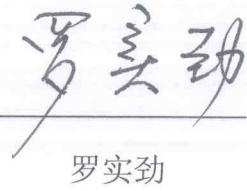 罗实劲
罗实劲